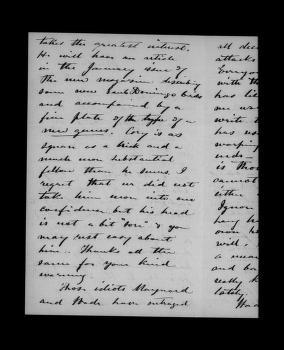 takes the greatest interest.
He will have an article
in the January issue of
the new magazine describing
some new San Domingo birds
and accompanied by a
fine plate of the type of a
new genus. Cory is as
square as a brick and a
much more substantial
fellow than he seems. I
regret that we did not
take him more into our
confidence but his head
is not a bit "sore" & you
may rest easy about
him. Thanks all the
same for your kind
warning.
Those idiots Maynard
and Wade have outraged
all dec
attacks
Everyon
with th
has lik
me wa
write t
has us
warping
is thos
cannot
either
Ignor
hang
own ho
will,
a mean
and ba
really
lately.
Wad